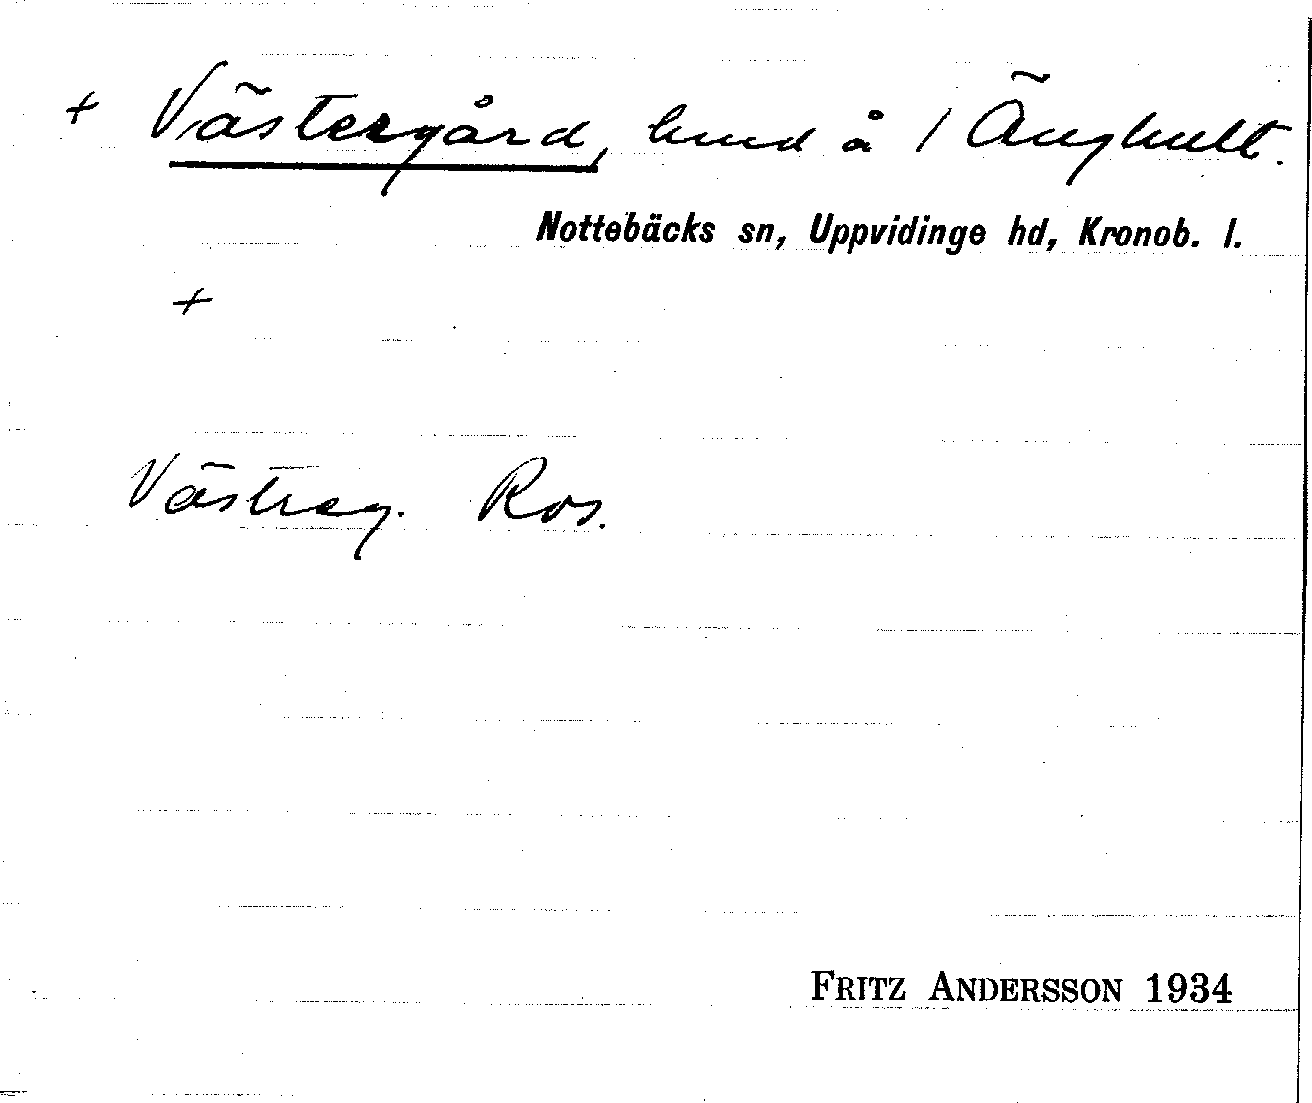 + Västergård, hmd å 1 Änghult.
Nottebäcks sn, Uppvidinge hd, Kronob. l.
+
Västreg. Ros.
FRITZ ANDERSSON 1934